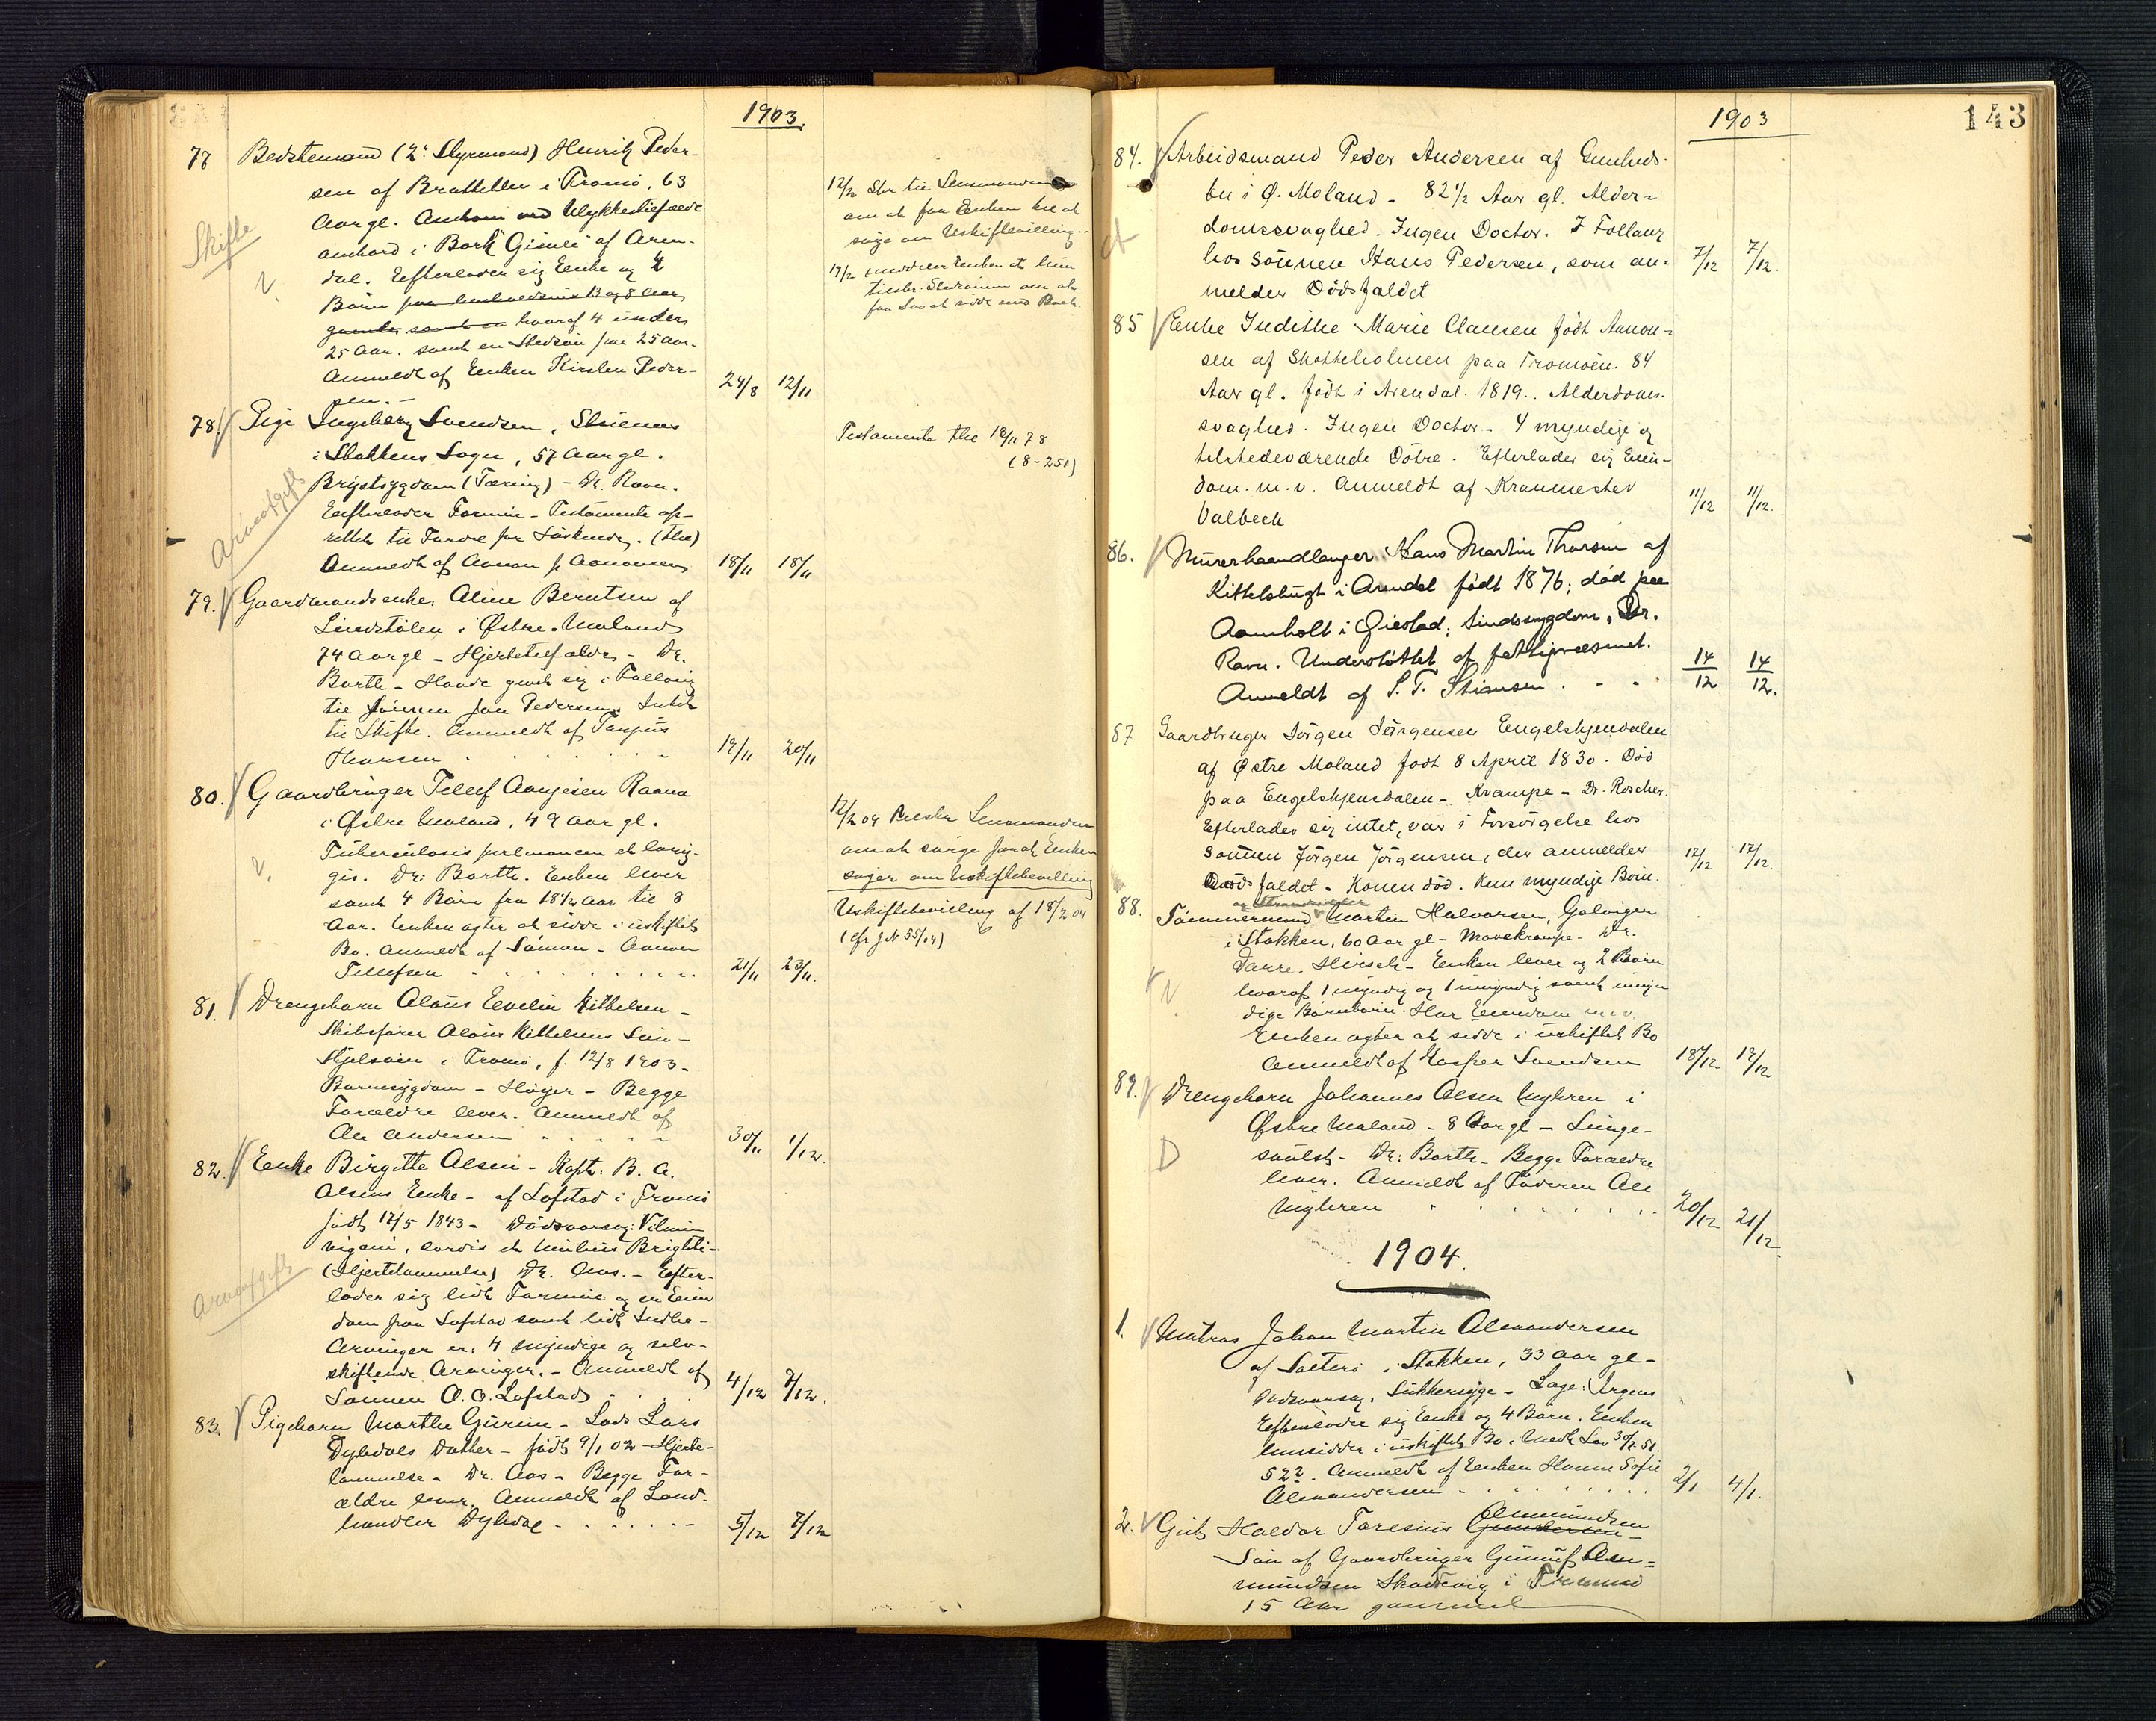 1903.
77 Bedstemand (2. Styrmand) Henrik Peder-
sen af Bratteklev i Tromö, 63
Aar gl. Omkom ved Ulykkestilfælde
ombord i Bark "Gisule" af Aren-
dal. Efterlader sig Enke og 4
Börn
hvoraf 4 under
25 Aar. samt en Stedsön paa 25 Aar.
Anmeldt af Enken Kirsten Peder-
sen. -
24/8 12/11
Skifte
12/2 Skr til Lensmanden
om at faa Enken til at
söge om Uskiftebevilling.
17/2 meddeler Enken at hun
om at
faa Lov at sidde med Boet.
78. Pige Ingeborg Svendsen, Strömnes
i Stokkens Sogn, 57 Aar gl.
Brystsygdom (Tæring) - Dr. Ravn.
Efterlader Formue - Testamente op-
rettet til Fordel for Söskende. (thl)
Anmeldt af Aanon J Aanonsen
18/11 18/11
Arveafgift
Testamente thl 18/11 78
(8-251)
79. Gaardmandsenke: Aline Berntsen af
Lindstölen i Östre Moland
74 Aar gl - Hjertetilfælde - Dr.
Barth - Havde givet sig i Follaug
til Sönnen Jan Pedersen. Intet
til Skifte. Anmeldt af Terjus
Thorsen
19/11 20/11
80. Gaardbruger Tellef Aanjesen Raana
i Östre Moland, 49 Aar gl.
Tuberculosis pulmonum et laryn-
gis. Dr: Barth. Enken lever
samt 4 Börn fra 18 1/2 Aar til 8
Aar. Enken agter at sidde i uskiftet
Bo. Anmeldt af Sönnen - Aanon
Tellefsen
21/11 23/11.
12/2 04 Lensmanden
om at sörge for at Enken
söger om Uskiftebevilling
Uskiftebevilling af 18/2 04
(cfr J N 55/04)
81. Drengebarn Alous Evelin Kittelsen -
Skibsförer Alous Kittelsens Sön -
Hjelsöen i Tromö, f. 12/8 1903 -
Barnesygdom - Höyer - Begge
Forældre lever. Anmeldt af
Ole Andersen
30/11 1/12.
82. Enke Birgitte Olsen - Kapt. B. A.
Olsens Enke - af Lofstad i Tromö
född 17/5 1843 - Dödsaarsag:
cordis et
(Hjertelammelse) Dr. Aas. - Efter-
lader sig lidt Formue og en Eien
dom paa Lofstad samt lidt Indbo -
Arvinger er: 4 myndige og selv-
skiftende Arvinger. - Anmeldt af
Sönnen O. O. Lofstad
4/12 7/12.
Arveafgift
83. Pigebarn Marthe Gurine - Lods Lars
Dybdals Datter - födt 9/1 02 - Hjerte-
lammelse - Dr. Aas - Begge For-
ældre lever. Anmeldt af Land-
handler Dybdal
5/12 7/12
143
1903
84. Arbeidsmand Peder Andersen af Gunhids-
bu i Ö. Moland - 82 1/2 Aar gl. Alder-
domssvaghed. Ingen Doctor. I Follaug
hos Sönnen Hans Pedersen, som an-
melder Dödsfaldet
7/12 7/12.
85 Enke Indithe Marie Clausen född Aanon-
sen af Skotteholmen paa Tromöen. 84
Aar gl. född i Arendal 1819. Alderdoms-
svaghed. Ingen Doctor - 4 myndige og
tilstedeværende Dötre. Efterlader sig Eien-
dom. m.v. Anmeldt af Kranmester
Valbech
11/12 11/12.
86. Murerhaandlanger Hans Martin Thorsen af
Kittelsbugt i Arendal födt 1876; död paa
Aamholt i Öiestad; Sindssygdom, Dr.
Ravn. Understöttet af fattigvæsenet.
Anmeldt af S. T. Stiansen
14/12 14/12.
87 Gaardbruger Jörgen Jörgensen Engelskjensdalen
af Östre Moland födt 8 April 1830. Död
paa Engelskjensdalen - Krampe - Dr. Roscher.
Efterlader sig intet, var i Forsörgelse hos
Sönnen Jörgen Jörgensen, der anmelder
Dödsfaldet - Konen död. Kun myndige Börn.
17/12 17/12.
88. og Strandsidder
Tömmermand Martin Halvorsen, Galvigen
i Stokken, 60 Aar gl - Mavekrampe - Dr.
Hirsch - Enken lever og 2 Börn
hvoraf 1 myndig og 1 umyndig samt umyn
dige Barnebörn. Har Eiendom m.v.
Enken agter at sidde i uskiftet Bo
Anmeldt af Kasper Svendsen
18/12 19/12
89. Drengebarn Johannes Olsen Myhren i
Östre Moland - 8 Aar gl - Lunge-
- Dr: Barth - Begge Forældre
lever. Anmeldt af Faderen Ole
Myhren
20/12 21/12
D
1904.
1. Matros Johan Martin Alexandersen
af Sæterö i Stokken, 33 Aar gl -
Dödsaarsag, Sukkersyge - Læge: Jrgens
Efterlader sig Enke og 4 Börn. Enken
hensidder i uskiftet Bo i Medh Lov 30/7 51.
§ 22. Anmeldt af Enken Hanne Sofie
Alexandersen
2/1 4/1.
2. Gut Haldor Taresius Gundersen Omundsen
Sön af Gaardbruger Gunuf Om-
mundsen Skudevig i Tromö
15 Aar gammel